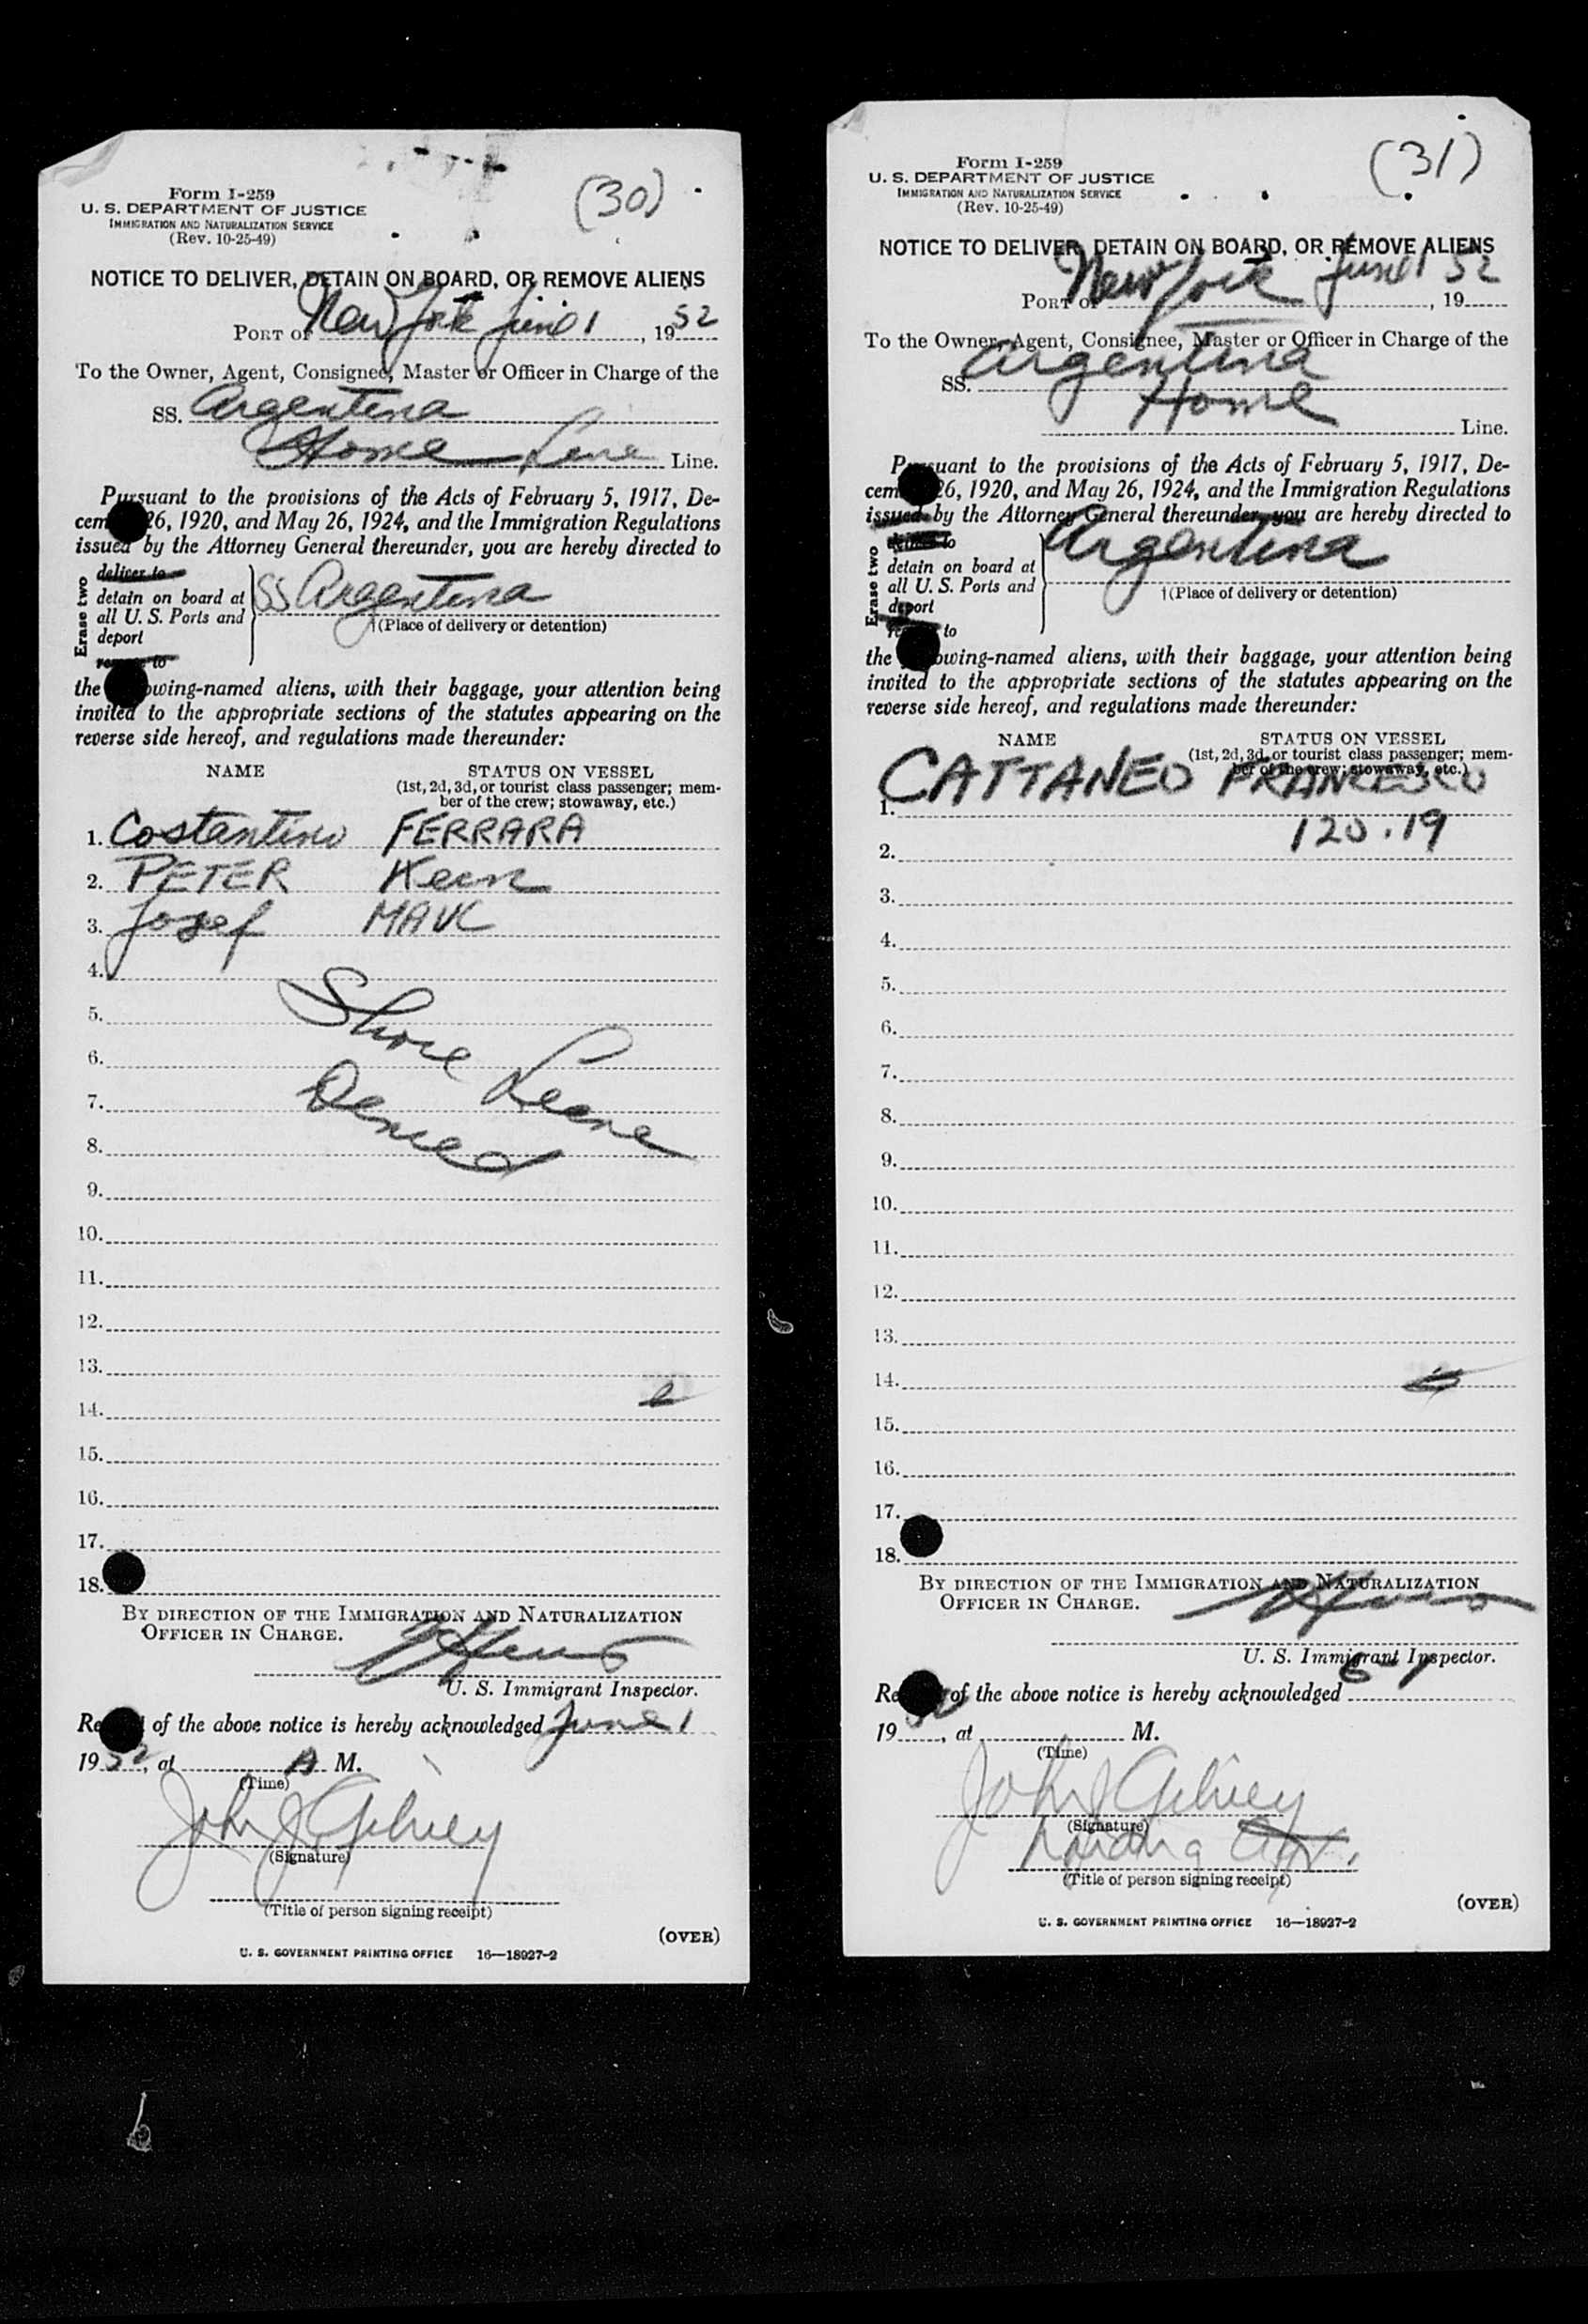 Form I-259
U. S. DEPARTMENT OF JUSTICE
IMMIGRATION AND NATURALIZATION SERVICE
(Rev. 10-25-49)
(30)
NOTICE TO DELIVER, DETAIN ON BOARD, OR REMOVE ALIENS
PORT OF New York June 1, 1952
To the Owner, Agent, Consignee, Master or Officer in Charge of the
SS. Argentina
Home Line Line.
Pursuant to the provisions of the Acts of February 5, 1917, De-
cem 26, 1920, and May 26, 1924, and the Immigration Regulations
issued by the Attorney General thereunder, you are hereby directed to
Erase two
deliver to
detain on board at
all U. S. Ports and
deport
remove to
SS Argentina
†(Place of delivery or detention)
the owing-named aliens, with their baggage, your attention being
invited to the appropriate sections of the statutes appearing on the
reverse side hereof, and regulations made thereunder:
NAME STATUS ON VESSEL
(1st, 2d, 3d, or tourist class passenger; mem-
ber of the crew; stowaway, etc.)
1. Costantino FERRARA
2. PETER
3. Josef
4.
5.
6.
7.
8.
Shore Leave
Denied
9.
10.
11.
12.
13.
14.
15.
16.
17.
18.
BY DIRECTION OF THE IMMIGRATION AND NATURALIZATION
OFFICER IN CHARGE.
U. S. Immigrant Inspector.
Re of the above notice is hereby acknowledged June 1
1952, at A M.
(Time)
John J
(Signature)
(Title of person signing receipt)
(OVER)
U. S. GOVERNMENT PRINTING OFFICE 16—18927-2
Form I-259
U. S. DEPARTMENT OF JUSTICE
IMMIGRATION AND NATURALIZATION SERVICE
(Rev. 10-25-49)
(31)
NOTICE TO DELIVER, DETAIN ON BOARD, OR REMOVE ALIENS
PORT OF New York June 1, 1952
To the Owner, Agent, Consignee, Master or Officer in Charge of the
SS. Argentina
Home Line.
Pursuant to the provisions of the Acts of February 5, 1917, De-
cem 26, 1920, and May 26, 1924, and the Immigration Regulations
issued by the Attorney General thereunder, you are hereby directed to
Erase two
deliver to
detain on board at
all U. S. Ports and
deport
to
Argentina
†(Place of delivery or detention)
the owing-named aliens, with their baggage, your attention being
invited to the appropriate sections of the statutes appearing on the
reverse side hereof, and regulations made thereunder:
NAME STATUS ON VESSEL
(1st, 2d, 3d, or tourist class passenger; mem-
ber of the crew; stowaway, etc.)
1. CATTANEO FRANCESCO
2. 120.19
3.
4.
5.
6.
7.
8.
9.
10.
11.
12.
13.
14.
15.
16.
17.
18.
BY DIRECTION OF THE IMMIGRATION AND NATURALIZATION
OFFICER IN CHARGE.
U. S. Immigrant Inspector.
Re of the above notice is hereby acknowledged 6-1
1952, at M.
(Time)
John J
(Signature)
(Title of person signing receipt)
(OVER)
U. S. GOVERNMENT PRINTING OFFICE 16—18927-2